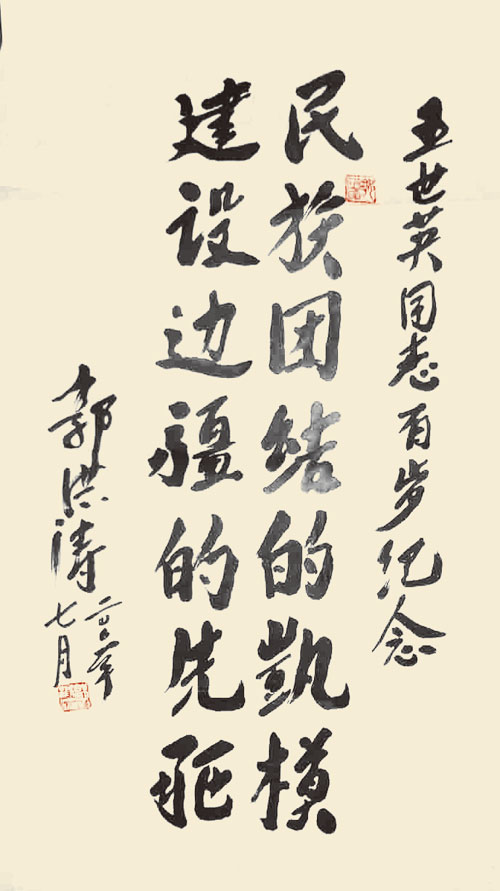 王世英同志百岁纪念
民族团结的凯模
建设边疆的先驱
郭洪涛
七月